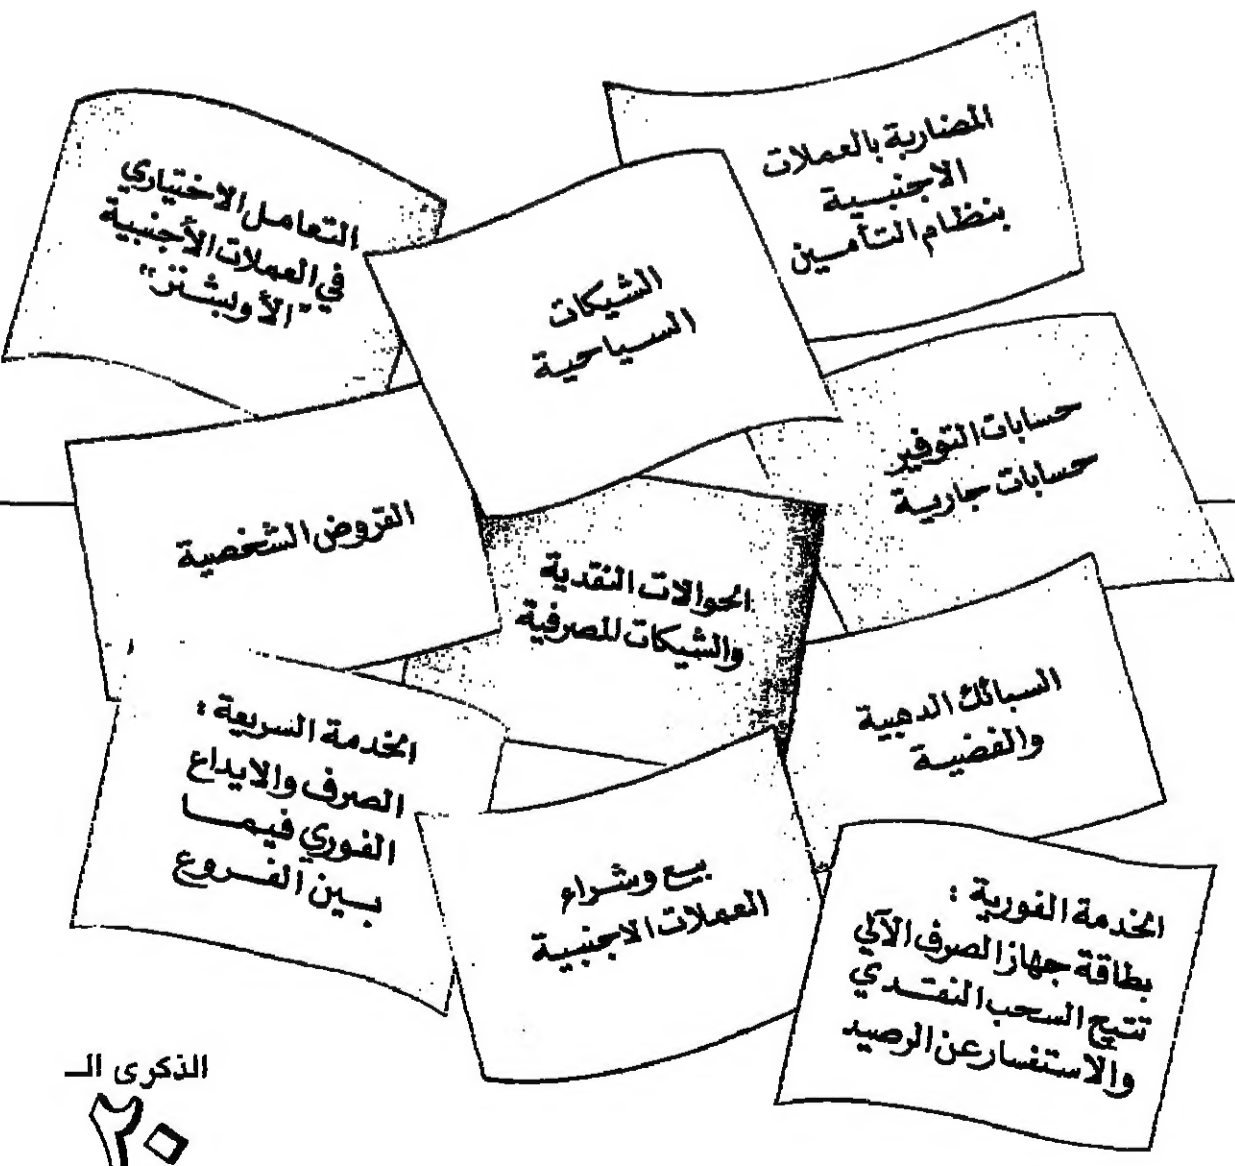 المضاربة بالعملات
الاجنبية
بنظام التأمين
التعامل الاختياري
في العملات الأجنبية
"الأوبشنز"
الشيكات
السياحية
حسابات التوفير
حسابات جارية
القروض الشخصية
الحوالات النقدية
والشيكات المصرفية
السبائك الدهبية
والفضية
الخدمة السريعة :
الصرف والايداع
الفوري فيما
بين الفروع
بيع وشراء
العملات الاجنبية
الخدمة الفورية :
بطاقة جهاز الصرف الآلي
تتيح السحب النقدي
والاستفسار عن الرصيد
الذكرى الـ
٢٠